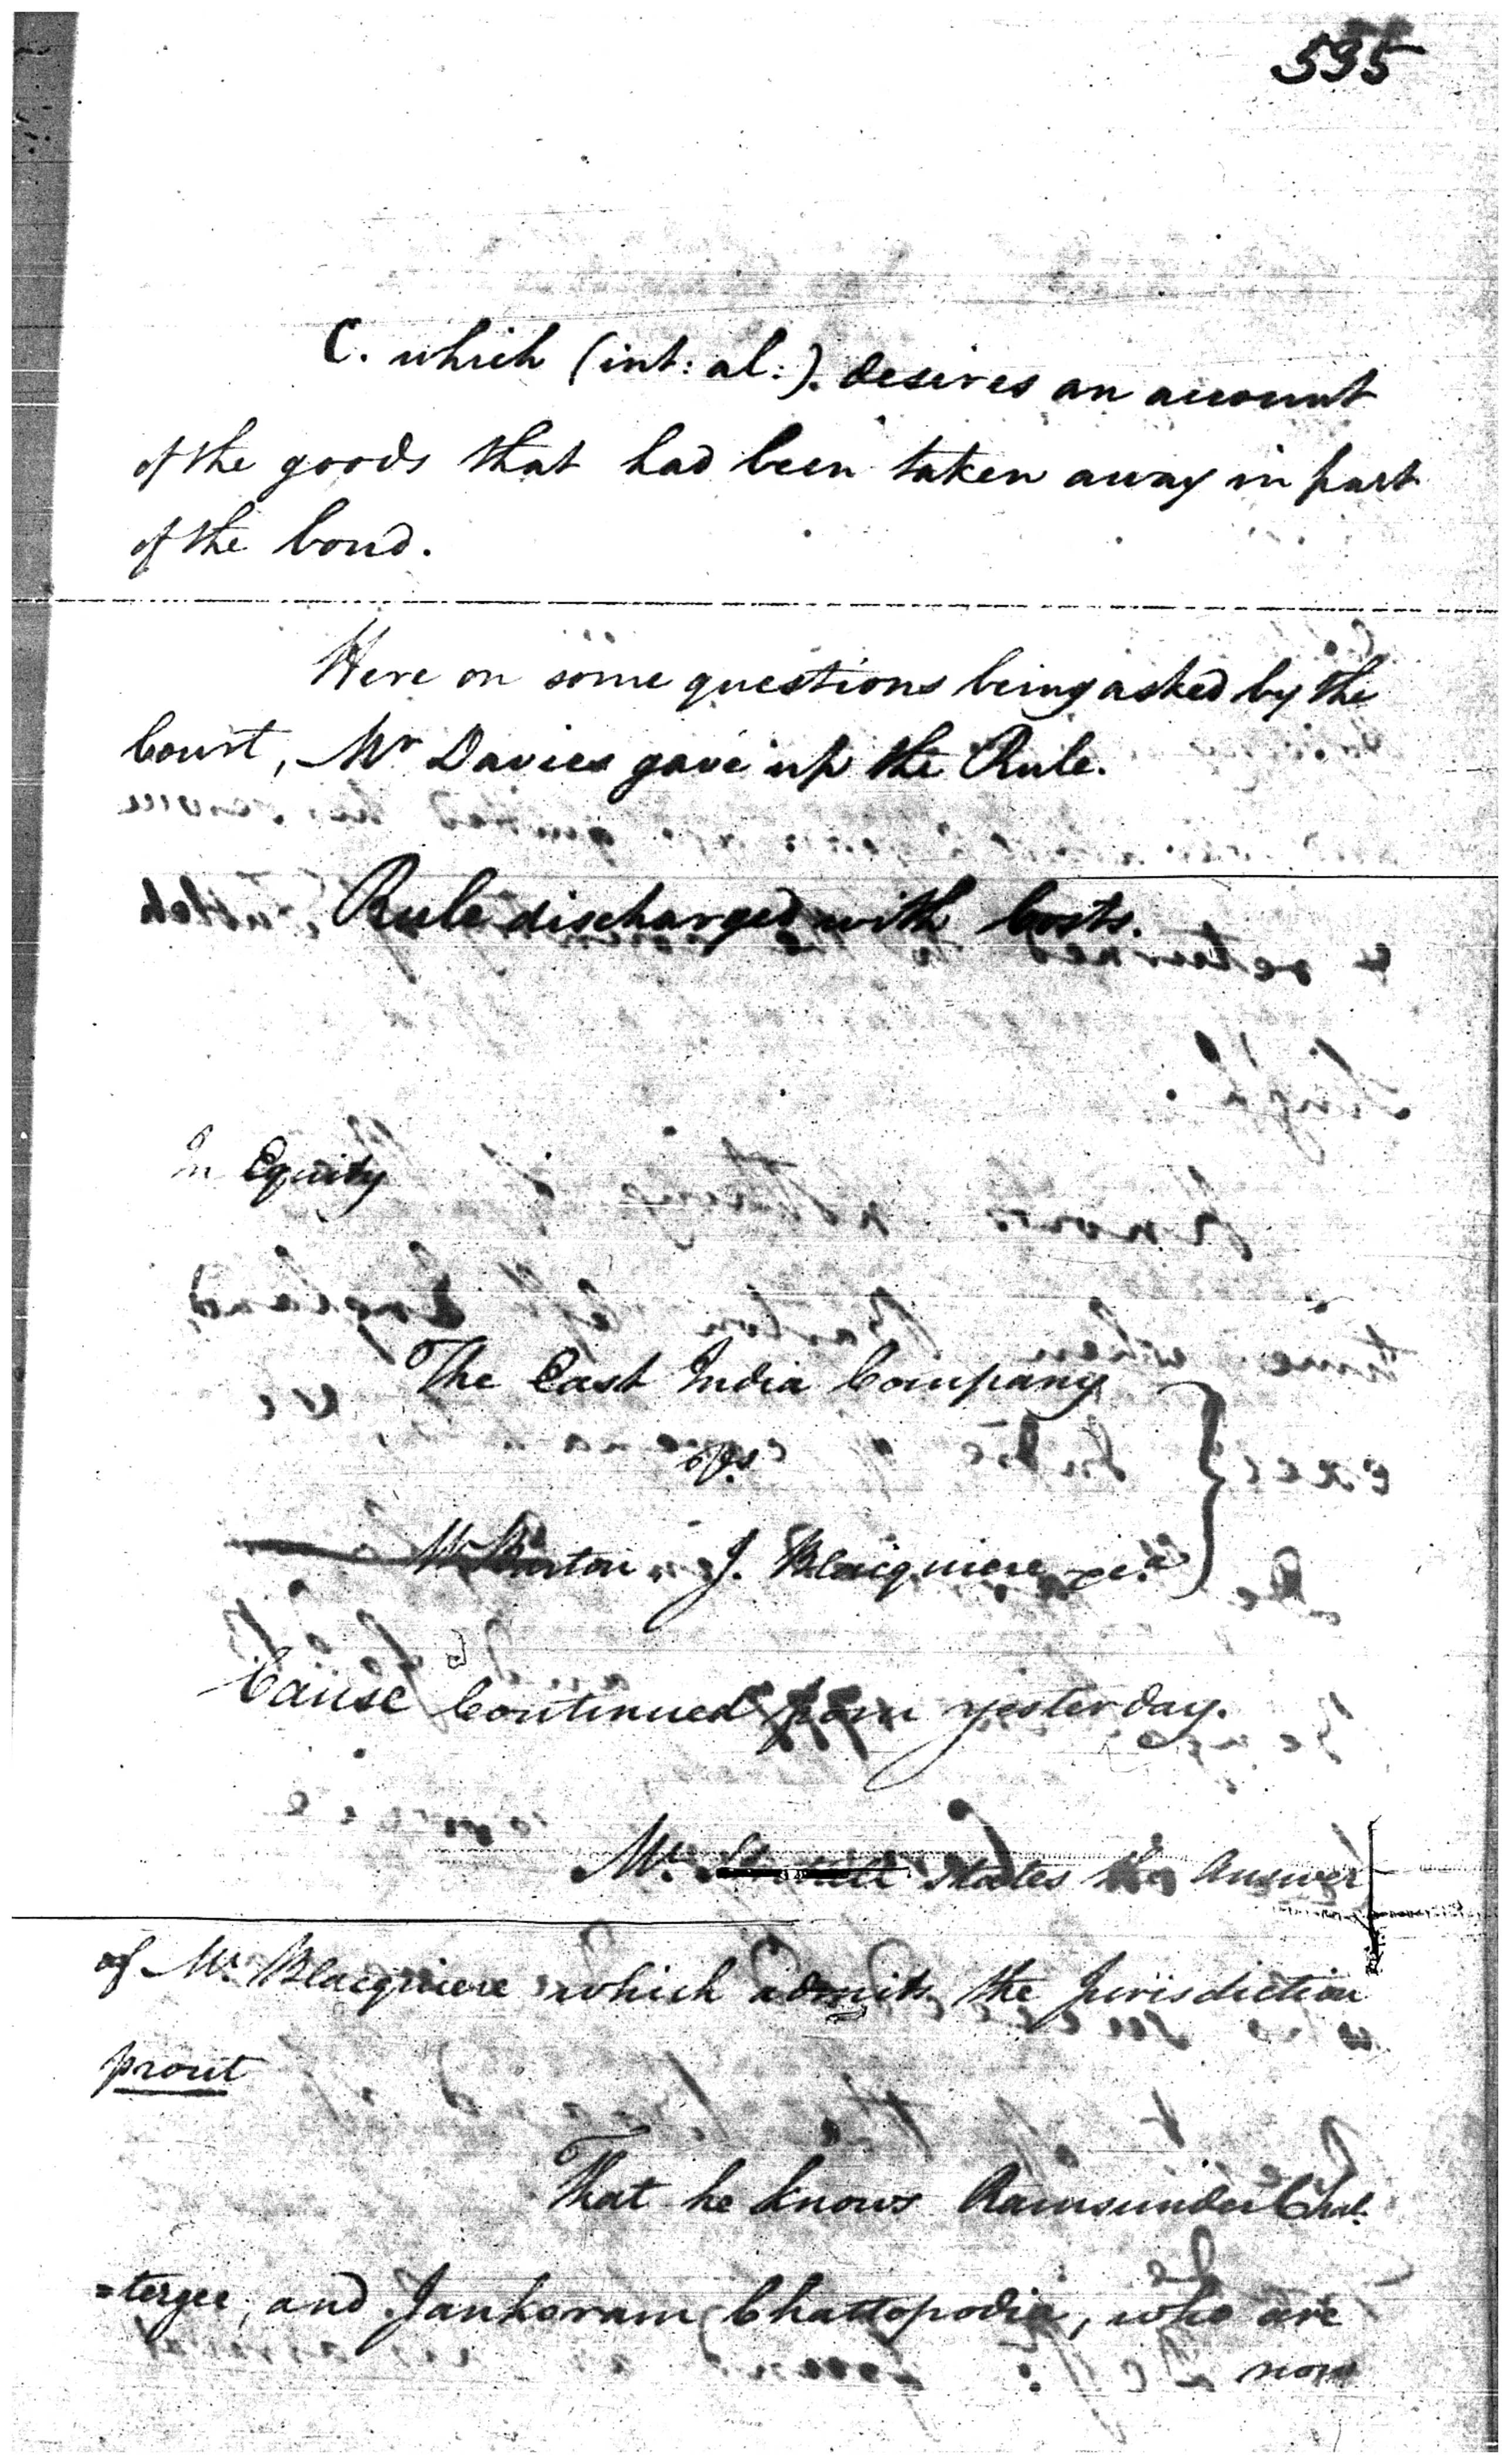 535
C. which (int: al:). desires an account
of the goods that had been taken away in part
of the bond.
Here on some questions being asked by the
Court, Mr Davies gave up the Rule.
Rule discharged with Costs.
In Equity
The East India Company
vs.
W Barton, J. Blacquiere &ca
Cause Continued from yesterday.
Mr. states the Answer
of Mr. Blacquiere which admits the Jurisdiction
prout
That he knows Ramsunder Chat
=tergee, and Jankeram Chattopodia, who are
now